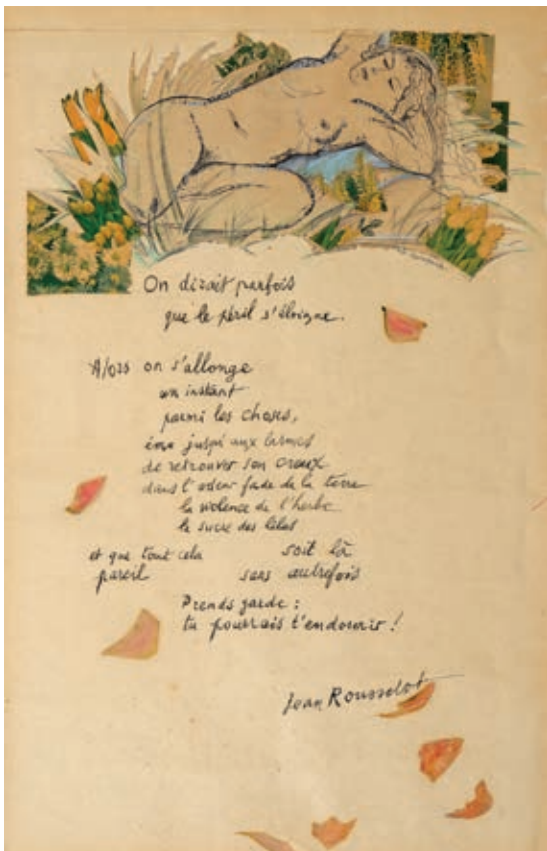 On dirait parfois
que le péril s'éloigne.
Alors on s'allonge
un instant
parmi les choses,
ému jusqu'aux larmes
de retrouver son creux
dans l'odeur fade de la terre
la violence de l'herbe
le sucre des lilas
et que tout cela soit là
pareil sans autrefois
Prends garde :
tu pourrais t'endormir !
Jean Rousselot